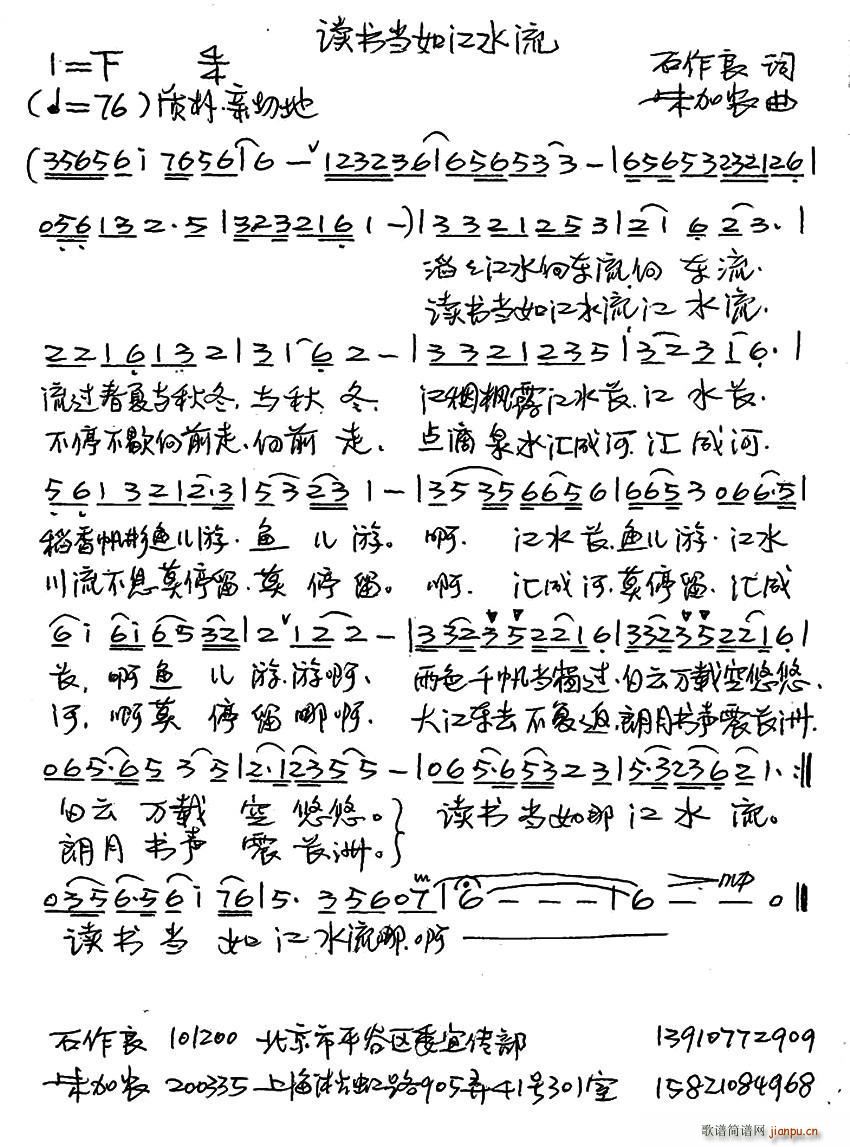 读书当如江水流
1=F 4/4 石作良 词
(♩=76)质朴·亲切地 朱加农 曲
(356561 76561|6 -ᵛ123236|6565653 3 -|65653232126|
0561 32·5|32321 6 1 -)|3321253|21 6 23·|
滔滔江水向东流,向 东流.
读书当如江水流,江 水流.
221 6 132|31 62 -|33 21235|323 16·|
流过春夏与秋冬,与秋 冬. 江烟枫露江水长,江 水长.
不停不歇向前走,向前 走. 点滴泉水汇成河,汇 成河.
56 13212·3|5323 1 -|35356656|6653 066·5|
稻香帆影鱼儿游.鱼 儿 游。 啊. 江水长,鱼儿游.江水
川流不息莫停留.莫 停 留。 啊. 汇成河,莫停留.汇成
6 1 616532|2ᵛ12 2 -|3323522 16|3323522 16|
长,啊鱼 儿 游.游啊. 两色千帆当独过,白云万载空悠悠.
河,啊莫 停留哪啊. 大江东去不复返,朗月书声震长洲.
065·65 35|2·12355 -|065·653 23|5·3236 21·:‖
白云 万载 空 悠悠。} 读书当如那江水 流。
朗月 书声 震 长洲。}
0356·561 76|5· 35607|6 - - -|6 - - 0‖ mp
读书当 如江水流哪.啊
石作良 101200 北京市平谷区委宣传部 13910772909
朱加农 200335 上海虹路905弄41号301室 15821084968
歌谱简谱网 jianpu.cn